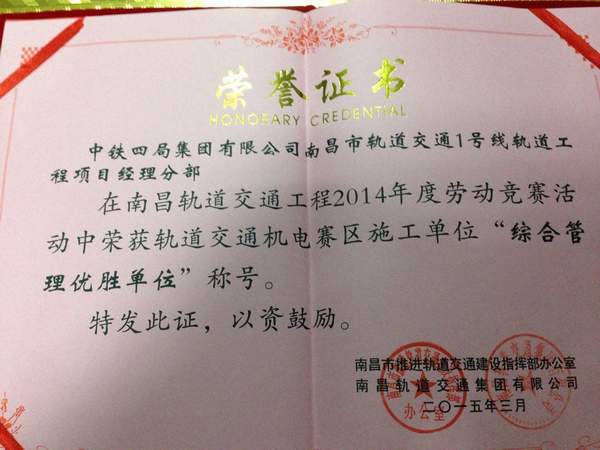 荣誉证书
HONORARY CREDENTIAL
中铁四局集团有限公司南昌市轨道交通1号线轨道工
程项目经理分部
在南昌轨道交通工程2014年度劳动竞赛活
动中荣获轨道交通机电赛区施工单位“综合管
理优胜单位”称号。
特发此证，以资鼓励。
南昌市推进轨道交通建设指挥部办公室
南昌轨道交通集团有限公司
二〇一五年三月
办公室